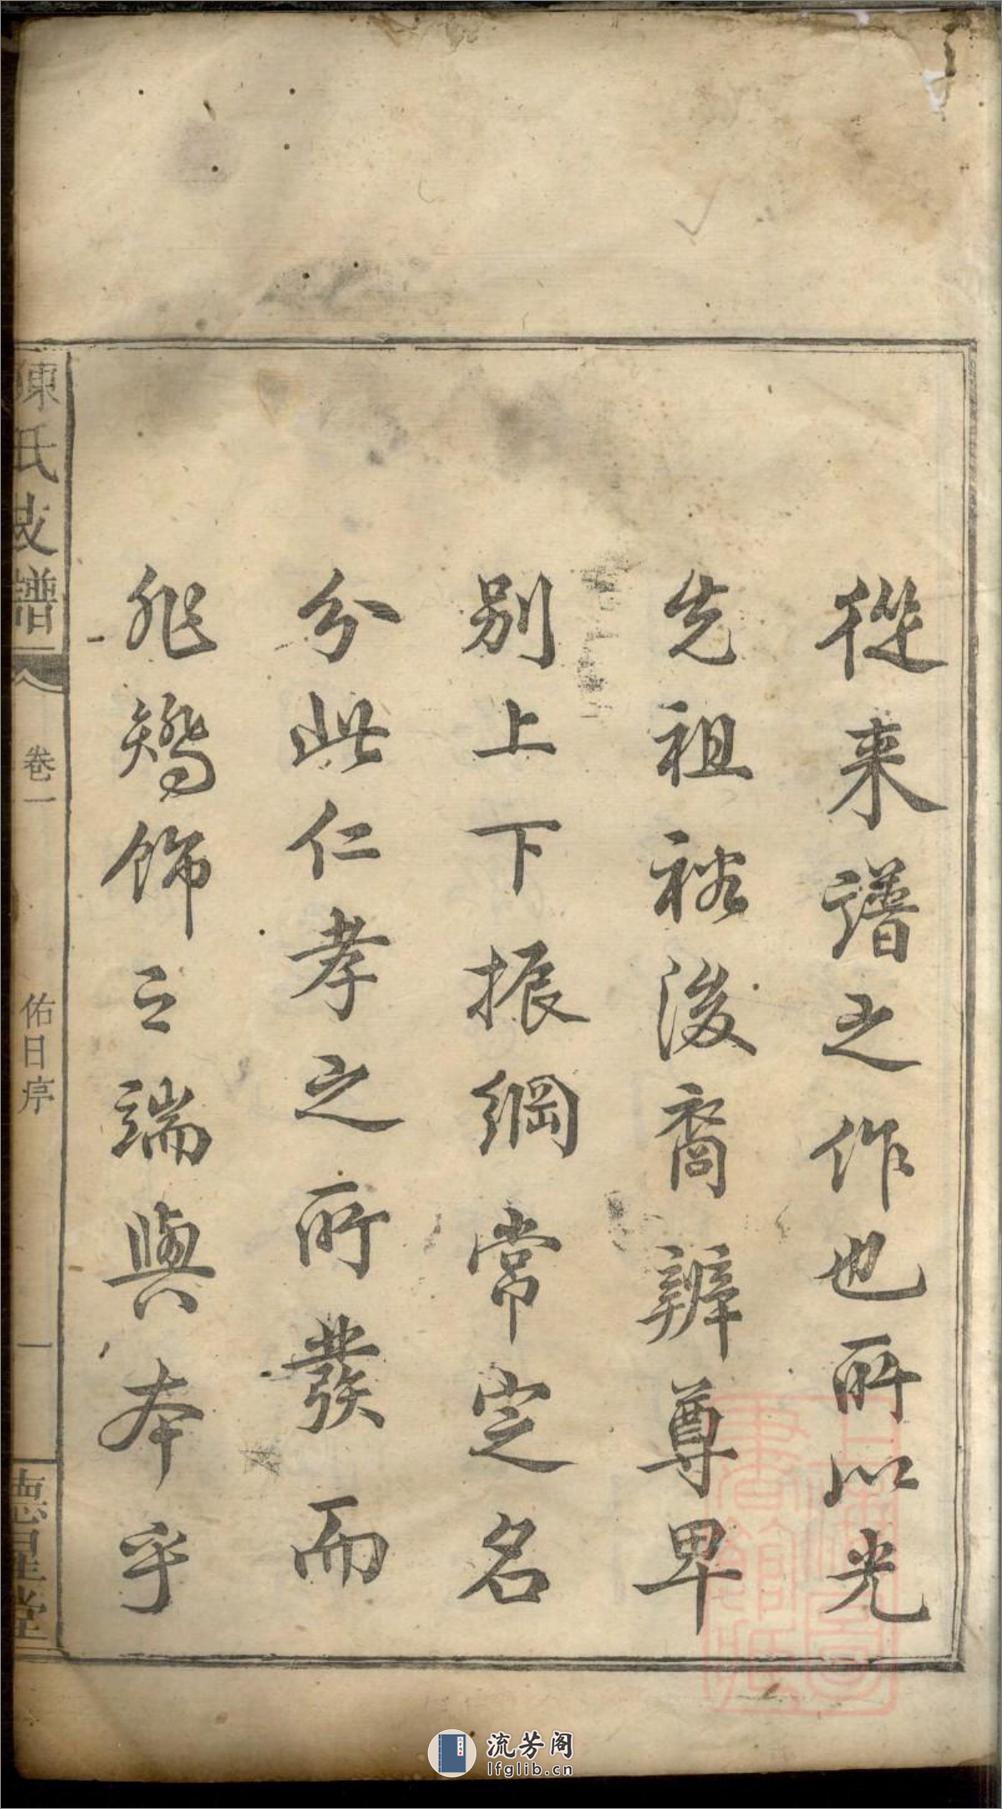 從来譜之作也所以光
先祖裕後裔辨尊卑
別上下振綱常定名
分此仁孝之所發而
非矯飾之端與本乎
陳氏支譜
卷一
佑日序
一
德星堂
流芳阁
lfglib.cn